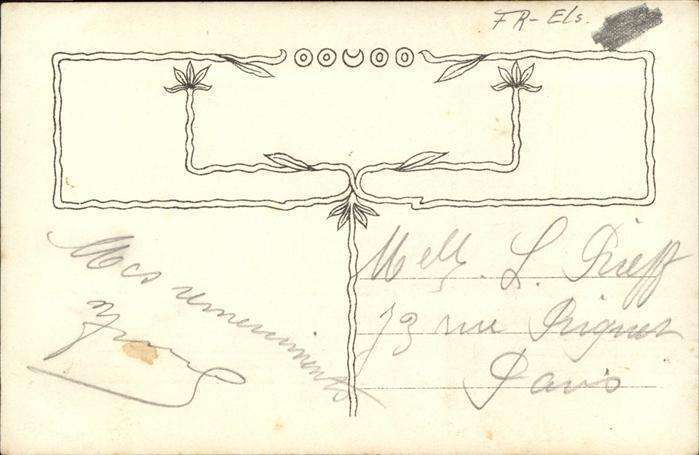 FR-Els.
Mes remerciments
Melle. L. Rieff
73 rue Riquet
Paris